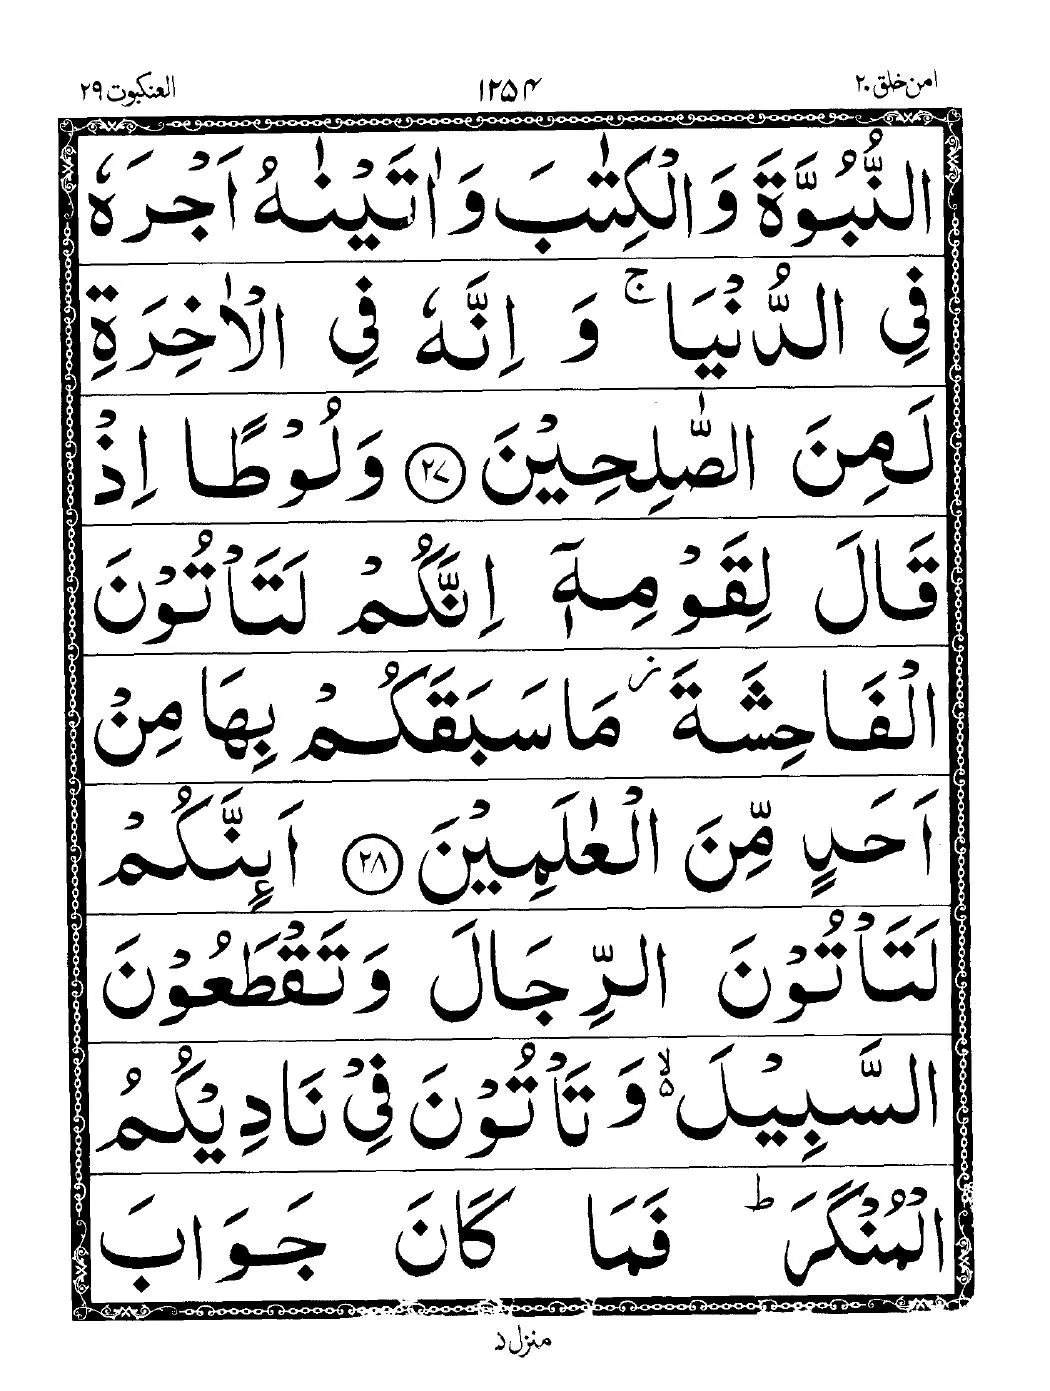 امن خلق ۲۰
۱۲۵۴
العنکبوت ۲۹
النُّبُوَّةَ وَالْكِتٰبَ وَاٰتَيْنٰهُ اَجْرَهٗ
فِي الدُّنْيَا ۚ وَ اِنَّهٗ فِي الْاٰخِرَةِ
لَمِنَ الصّٰلِحِيْنَ ۲۷ وَلُوْطًا اِذْ
قَالَ لِقَوْمِهٖٓ اِنَّكُمْ لَتَاْتُوْنَ
الْفَاحِشَةَ ز مَا سَبَقَكُمْ بِهَا مِنْ
اَحَدٍ مِّنَ الْعٰلَمِيْنَ ۲۸ اَىِٕنَّكُمْ
لَتَاْتُوْنَ الرِّجَالَ وَتَقْطَعُوْنَ
السَّبِيْلَ ۙ۬ وَتَاْتُوْنَ فِيْ نَادِيْكُمُ
الْمُنْكَرَ ؕ فَمَا كَانَ جَوَابَ
منزل ۵